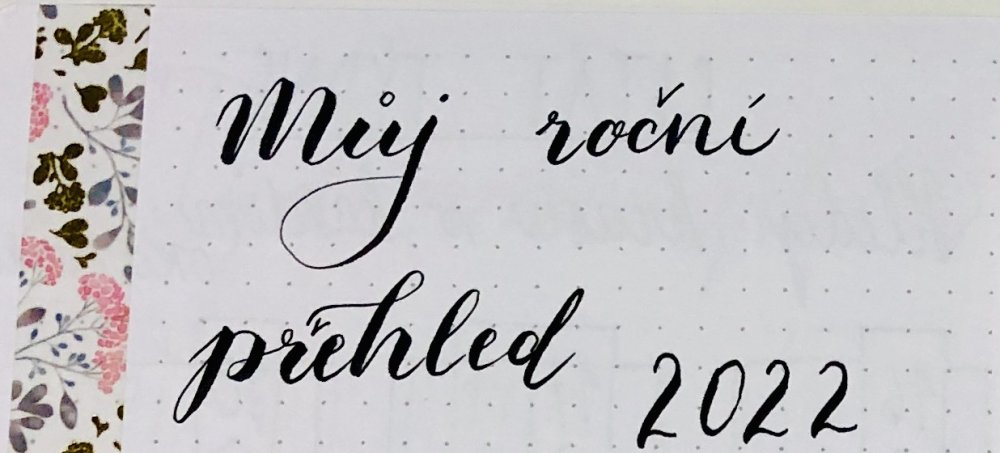 Můj roční
přehled 2022